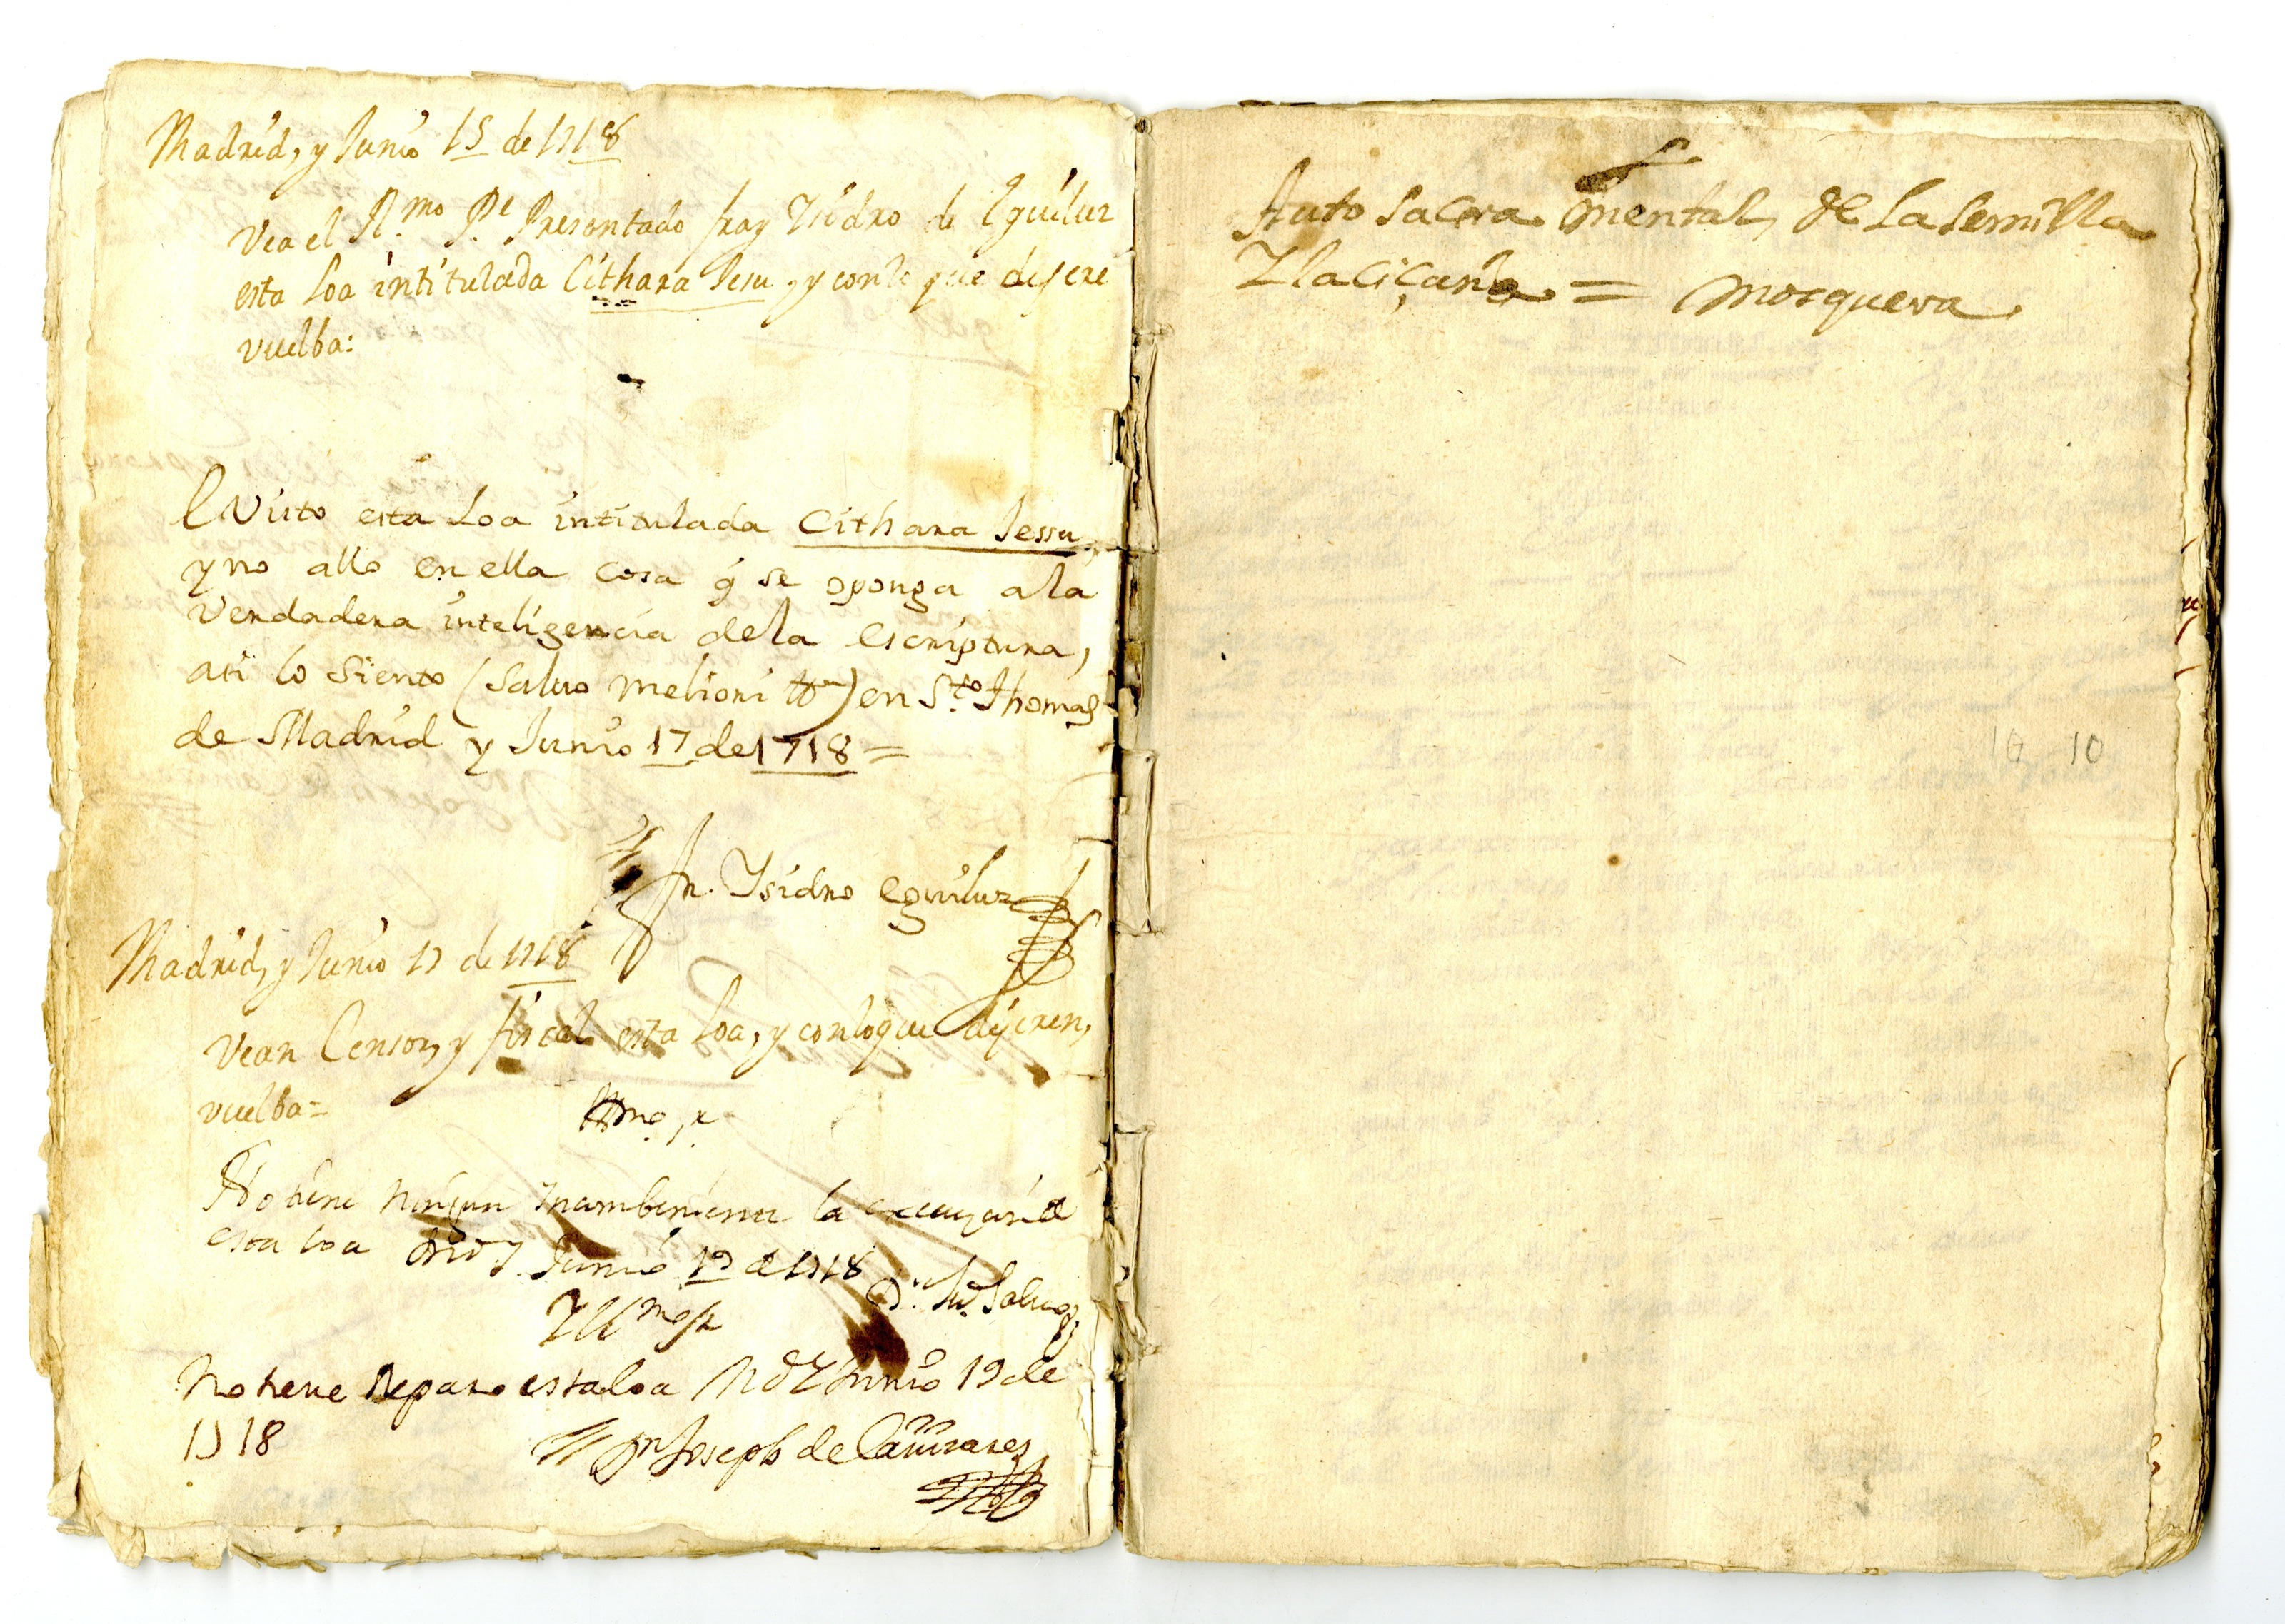 Madrid, y Junio 15 de 1718
Vea el R.mo Pe Presentado fray Ysidro de Eguiluz
esta Loa intitulada Cithara Jesu, y con lo que dijere
vuelba:
E Visto esta Loa intitulada Cithara Jessu,
y no allo en ella cosa q̃ se oponga a la
Verdadera inteligencia de la Escriptura,
asi lo siento (salvo meliori) en S.to Thomas
de Madrid y Junio 17 de 1718 =
Fr. Ysidro Eguiluz
Madrid, y Junio 17 de 1718
Vean Censor, y fiscal esta Loa, y con lo que dijeren,
vuelba=
No tiene ningun Incombeniente la
esta loa Junio 19 de 1718
Yllmo Sr
No tiene Reparo esta loa Md Y Junio 19 de
1718
Dn Joseph de Cañizares
Auto Sacra mental, de La Semilla
Y la Ciçaña = Mosquera
10 10